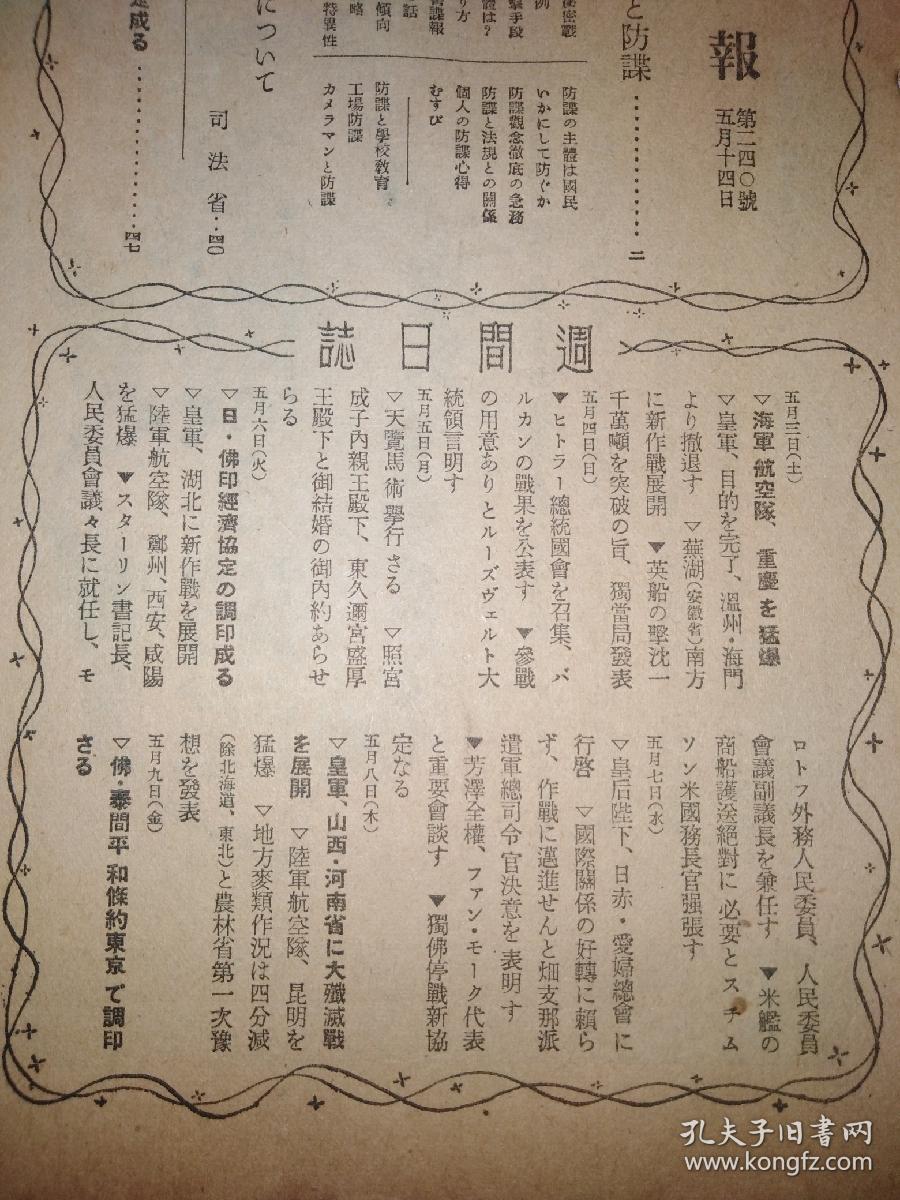 報
第二四〇號
五月十四日
と防諜…………………二
防諜の主體は國民
いかにして防ぐか
防諜觀念徹底の急務
防諜と法規との關係
個人の防諜心得
むすび
防諜と學校敎育
工場防諜
カメラマンと防諜
祕密戰
例
擊手段
體は?
り方
諜報
話
傾向
略
特異性
について
司法省‥四〇
成る………………四七
週間日誌
五月三日(土)
▽海軍航空隊、重慶を猛爆
▽皇軍、目的を完了、溫州・海門
より撤退す ▽蕪湖(安徽省)南方
に新作戰展開 ▼英船の擊沈一
千萬噸を突破の旨、獨當局發表
五月四日(日)
▼ヒトラー總統國會を召集、バ
ルカンの戰果を公表す ▼參戰
の用意ありとルーズヴェルト大
統領言明す
五月五日(月)
▽天覽馬術擧行さる ▽照宮
成子內親王殿下、東久邇宮盛厚
王殿下と御結婚の御內約あらせ
らる
五月六日(火)
▽日・佛印經濟協定の調印成る
▽皇軍、湖北に新作戰を展開
▽陸軍航空隊、鄭州、西安、咸陽
を猛爆 ▼スターリン書記長、
人民委員會議々長に就任し、モ
ロトフ外務人民委員、人民委員
會議副議長を兼任す ▼米艦の
商船護送絕對に必要とスチム
ソン米國務長官强張す
五月七日(水)
▽皇后陛下、日赤・愛婦總會に
行啓 ▽國際關係の好轉に賴ら
ず、作戰に邁進せんと畑支那派
遣軍總司令官決意を表明す
▼芳澤全權、ファン・モーク代表
と重要會談す ▼獨佛停戰新協
定なる
五月八日(木)
▽皇軍、山西・河南省に大殲滅戰
を展開 ▽陸軍航空隊、昆明を
猛爆 ▽地方麥類作況は四分減
(除北海道、東北)と農林省第一次豫
想を發表
五月九日(金)
▽佛・泰間平和條約東京で調印
さる
孔夫子旧书网
www.kongfz.com